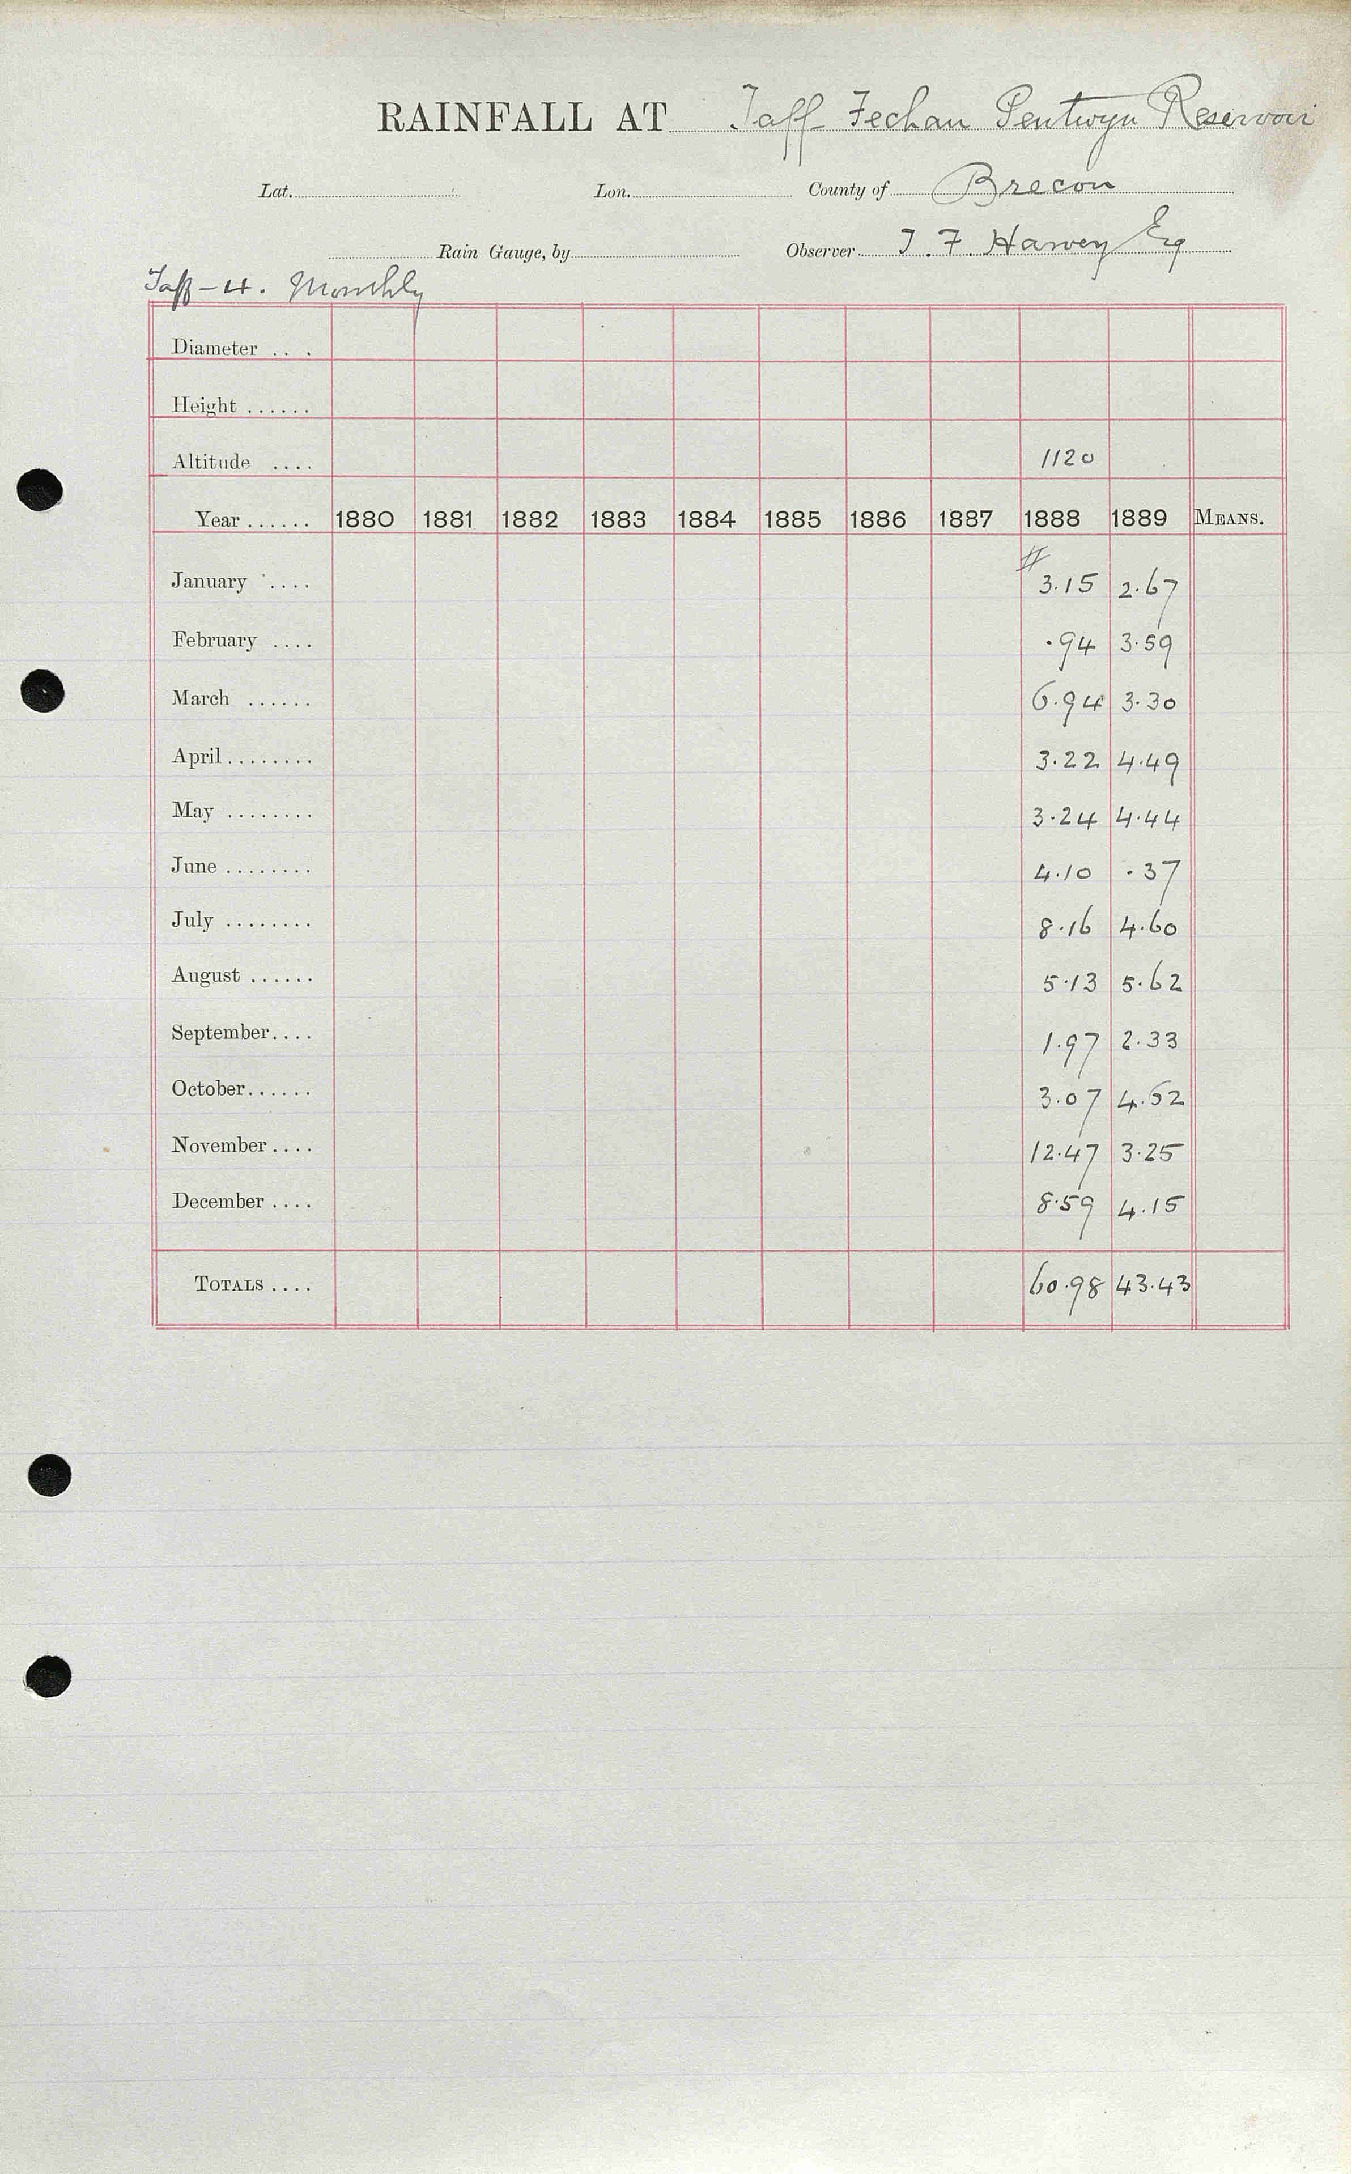 RAINFALL AT Taff Fechan Pentwyn Reservoir
Lat. Lon. County of Brecon
Rain Gauge, by Observer J. F. Harvey Esq
Taff - 4. Monthly
Diameter .. .
Height ......
Altitude .... 1120
Year ...... 1880 1881 1882 1883 1884 1885 1886 1887 1888 1889 MEANS.
#
January .... 3.15 2.67
February .... .94 3.59
March ...... 6.94 3.30
April ........ 3.22 4.49
May ........ 3.24 4.44
June ........ 4.10 .37
July ........ 8.16 4.60
August ...... 5.13 5.62
September.... 1.97 2.33
October...... 3.07 4.62
November .... 12.47 3.25
December .... 8.59 4.15
TOTALS .... 60.98 43.43